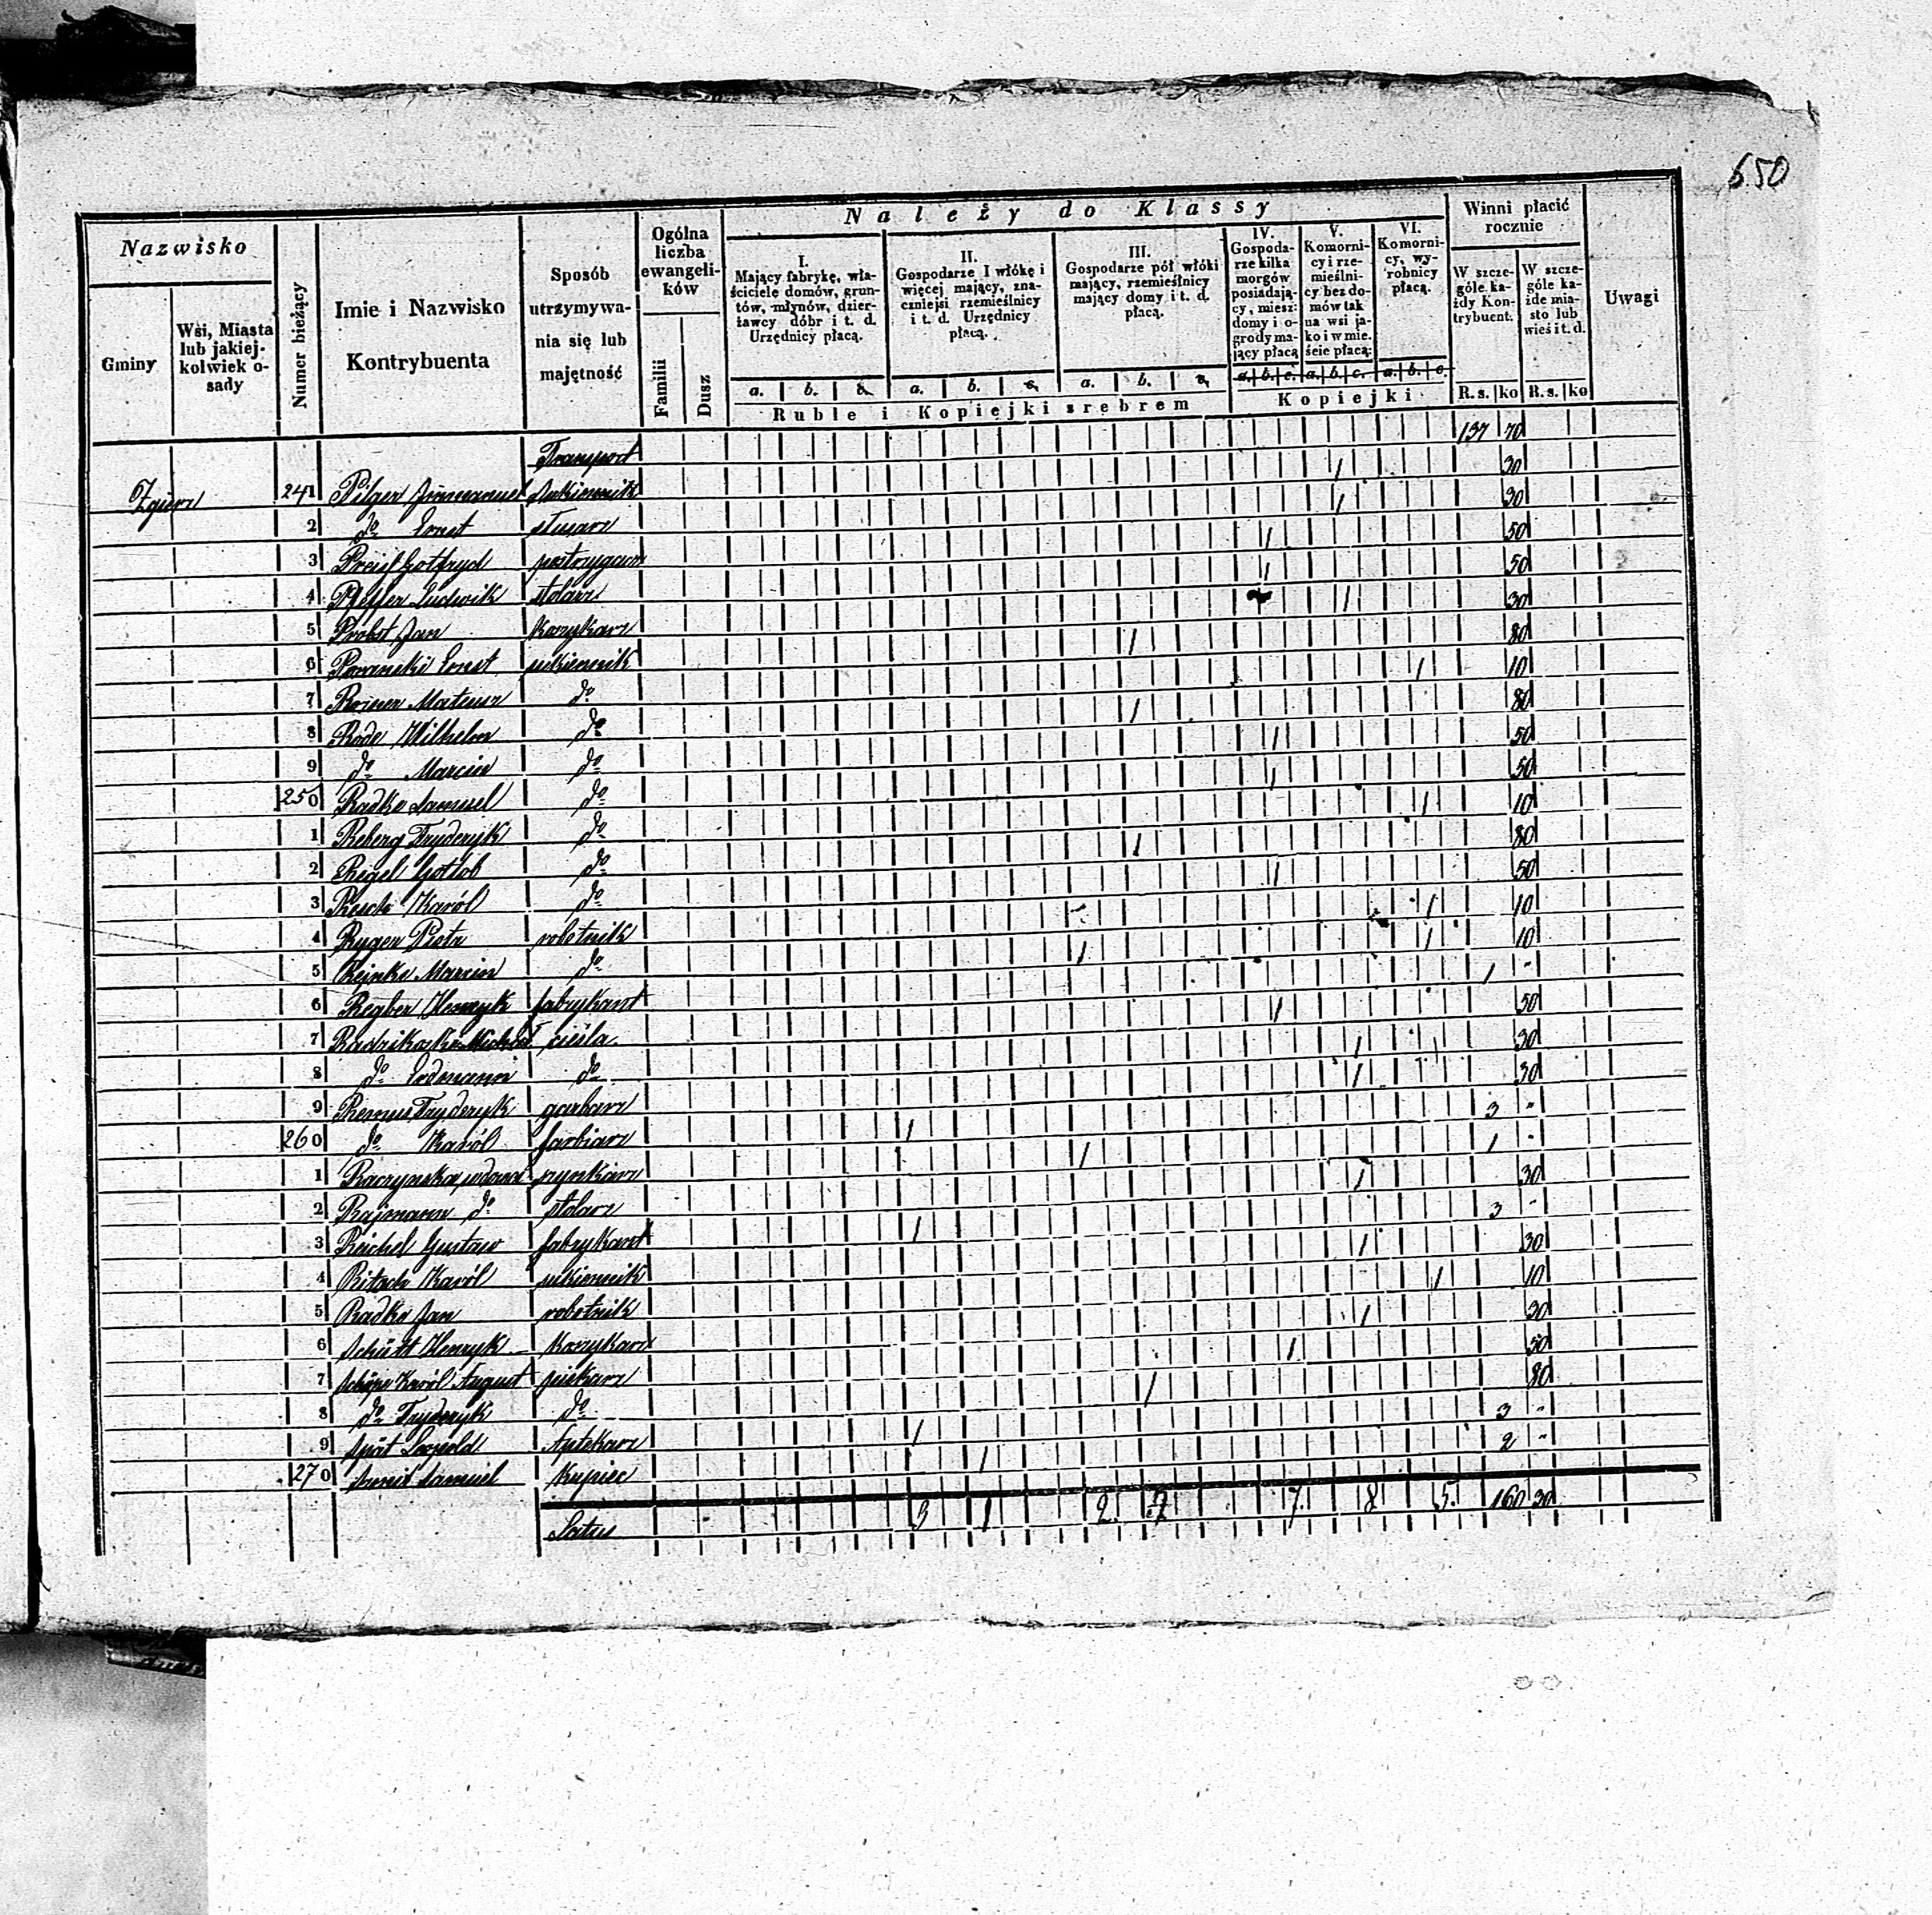 650
Nazwisko
Gminy
Wsi, Miasta lub jakiej-kolwiek o-sady
Numer bieżący
Imie i Nazwisko Kontrybuenta
Sposób utrzymywa-nia się lub majętność
Ogólna liczba ewangeli-ków
Familii
Dusz
Należy do Klassy
I. Mający fabrykę, wła-ściciele domów, grun-tów, młynów, dzier-żawcy dóbr i t. d. Urzędnicy płacą.
II. Gospodarze I włókę i więcej mający, zna-czniejsi rzemieślnicy i t. d. Urzędnicy płacą.
III. Gospodarze pół włóki mający, rzemieślnicy mający domy i t. d. płacą.
IV. Gospoda-rze kilka morgów posiadają-cy, miesz: domy i o-grody ma-jący płacą
V. Komorni-cy i rze-mieślni-cy bez do-mów tak na wsi ja-ko i w mie-ście płacą:
VI. Komorni-cy, wy-robnicy płacą.
Winni płacić rocznie
W szcze-góle ka-żdy Kon-trybuent.
W szcze-góle ka-żde mia-sto lub wieś i t. d.
Uwagi
a. b. c. a. b. c. a. b. c. a. b. c. a. b. c. a. b. c.
Ruble i Kopiejki srebrem
Kopiejki
R. s. ko R. s. ko
Transport 137 70
Zgierz 241 Pilger Immanuel Sukiennik 1 30
2 do Ernst ślusarz 1 30
3 Preis Gotfryd postrzygacz 1 50
4 Pfeffer Ludwik stolarz 1 50
5 Probst Jan koszykarz 1 30
6 Ernst sukiennik 1 80
7 Mateusz do 1 10
8 Rode Wilhelm do 1 80
9 do Marcin do 1 50
250 Radke Samuel do 1 50
1 Reberg Fryderyk do 1 10
2 Regel Gotlob do 1 80
3 Resch Karól do 1 50
4 Ryger Piotr robotnik 1 10
5 Rejnke Marcin do 1 10
6 Henryk fabrykant 1 1 "
7 Michał cieśla 1 50
8 do Erdmann do 1 30
9 Remus Fryderyk garbarz 1 30
260 do Karól farbiarz 1 3 "
1 Raczynska wdowa szynkarz 1 1 "
2 Rajmann do stolarz 1 30
3 Reichel Gustaw fabrykant 1 3 "
4 Karól sukiennik 1 30
5 Radke Jan robotnik 1 10
6 Henryk koszykarz 1 30
7 Karól August piekarz 1 50
8 do Fryderyk do 1 80
9 Spät Leopold Aptekarz 1 3 "
270 Samuel Kupiec 1 2 "
Latus 3 1 2 7 7 8 5 160 30